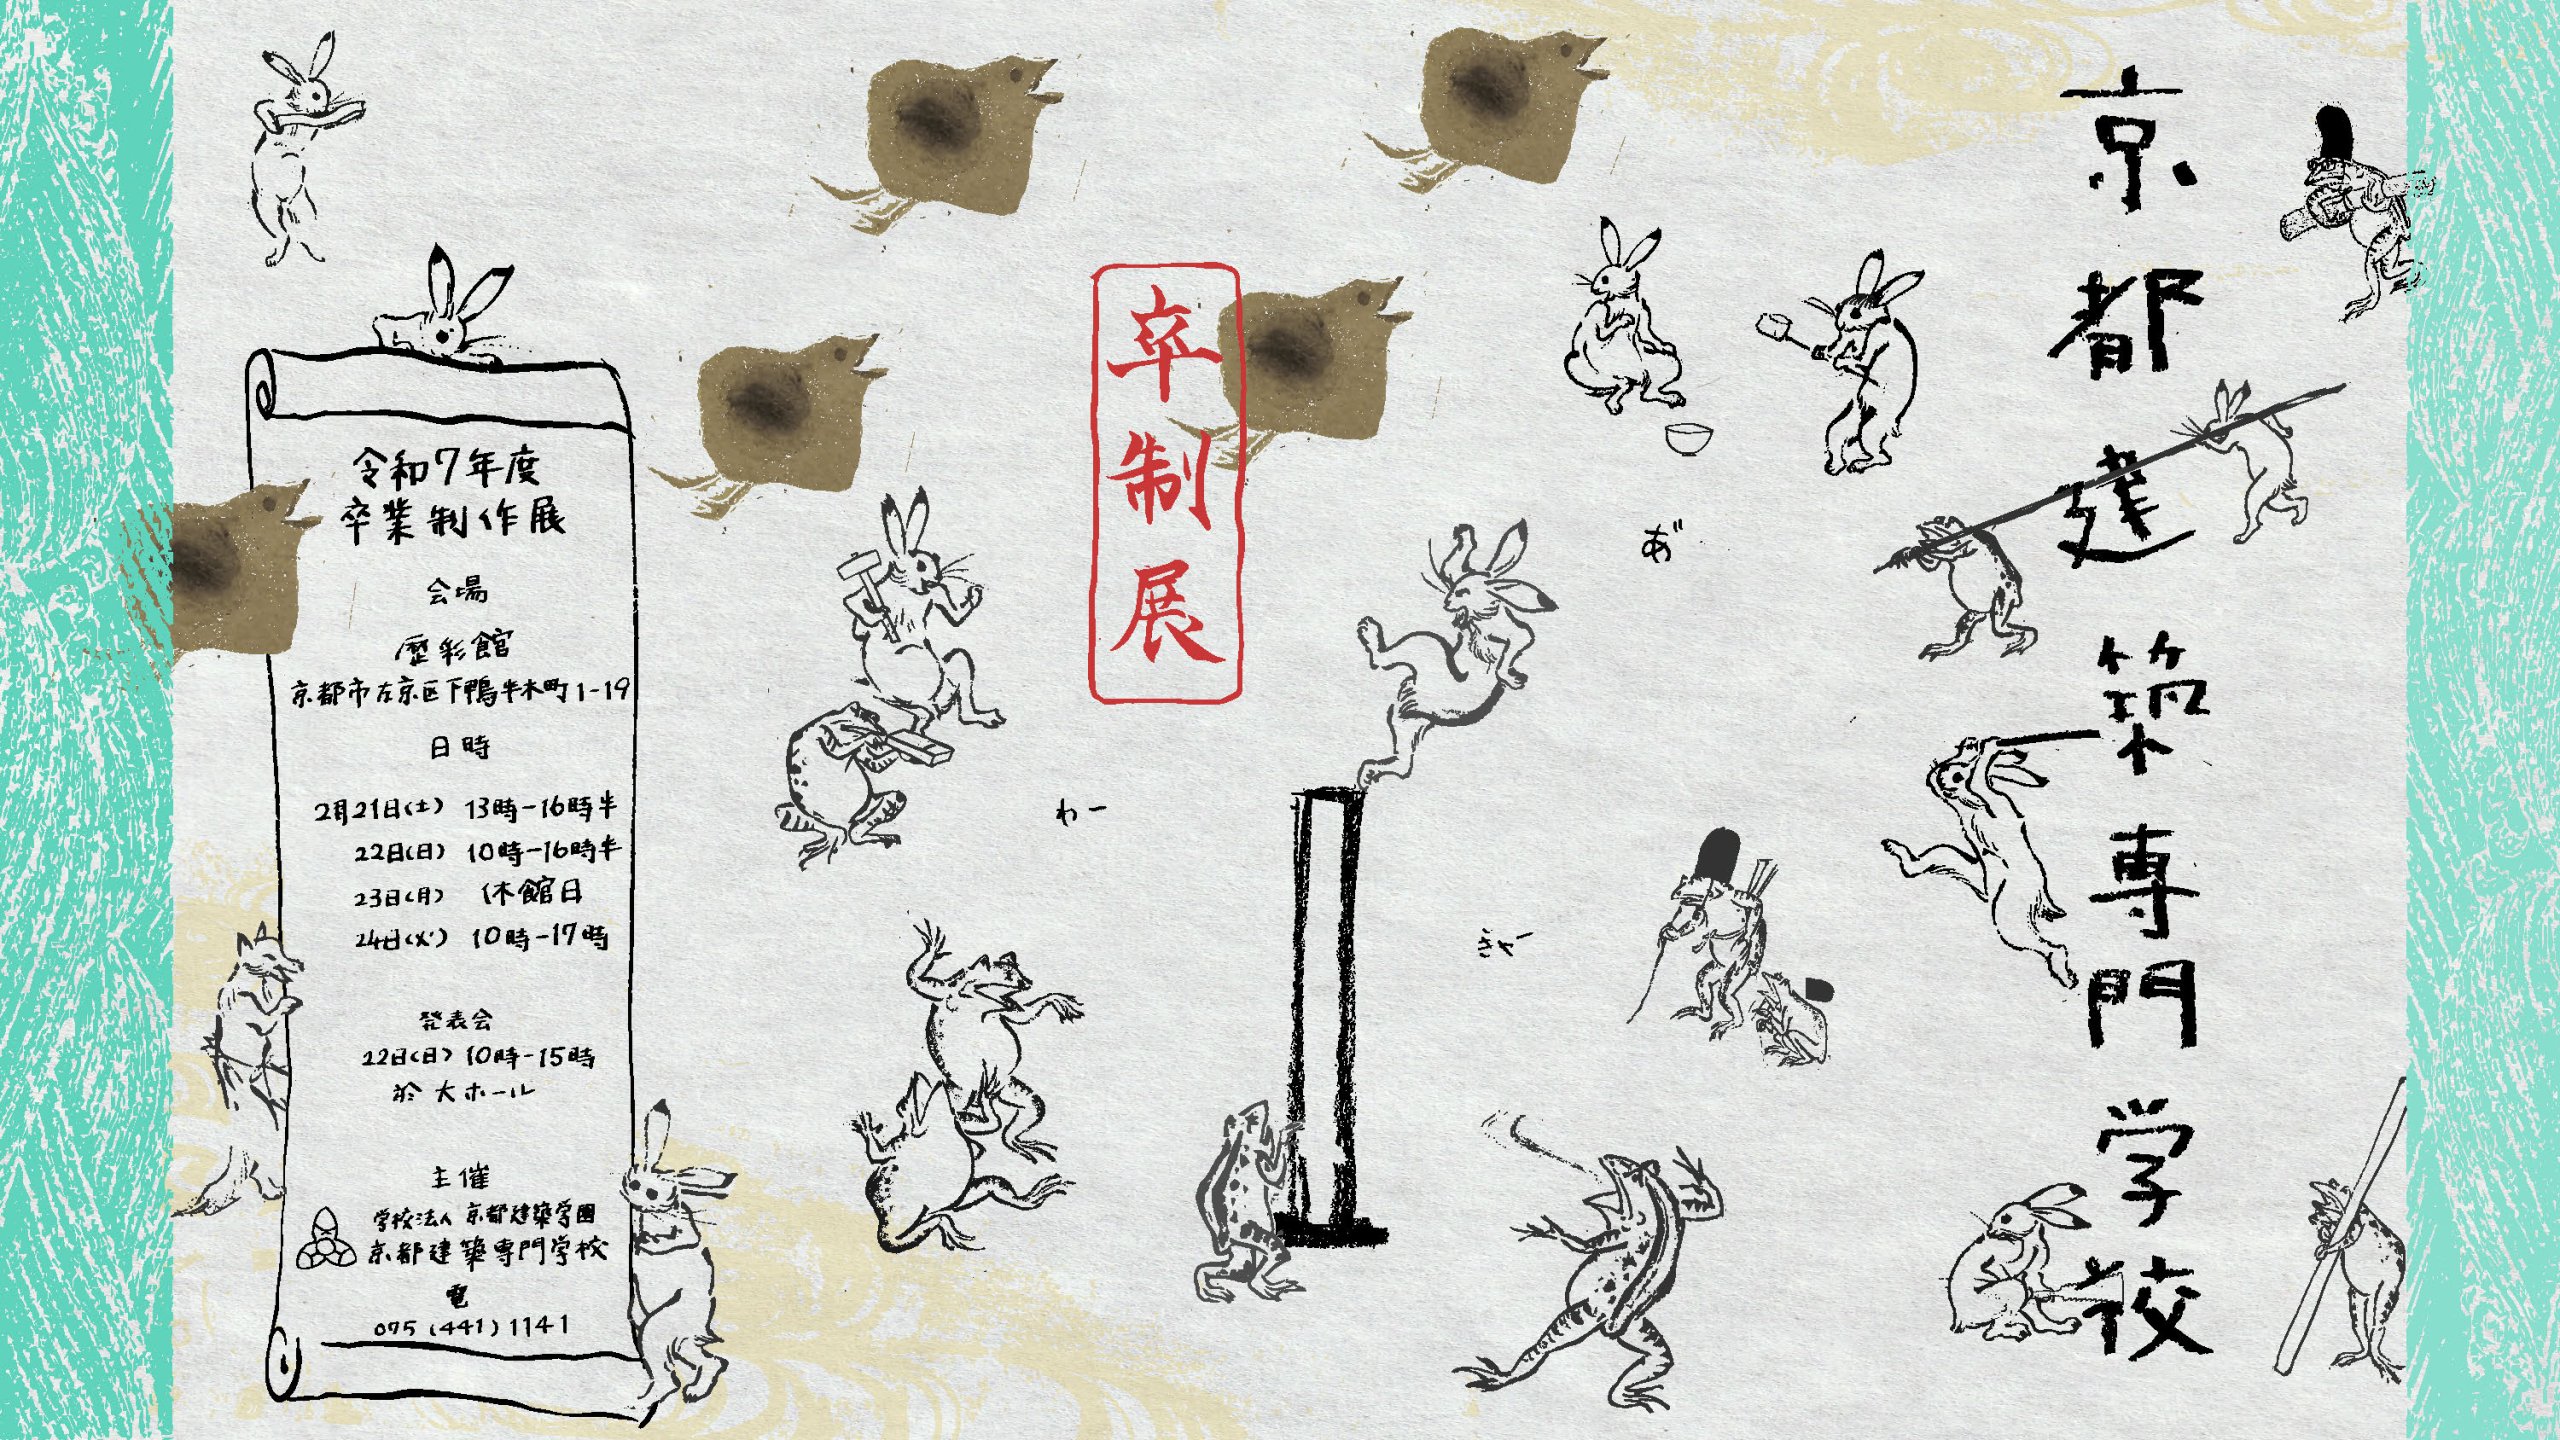 京都建築専門学校
卒制展
あ゛
わー
きゃー
令和7年度
卒業制作展
会場
歴彩館
京都市左京区下鴨半木町1-19
日時
2月21日(土) 13時-16時半
22日(日) 10時-16時半
23日(月) 休館日
24日(火) 10時-17時
発表会
22日(日) 10時-15時
於 大ホール
主催
学校法人 京都建築学園
京都建築専門学校
電
075 (441) 1141